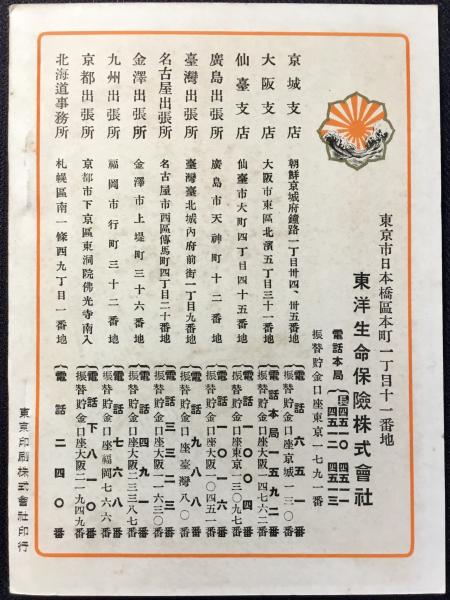 東京市日本橋區本町一丁目十一番地
東洋生命保險株式會社
電話本局
四五一〇 四五一一
四五一二 四五一三
振替貯金口座東京一七九一番
京城支店 朝鮮京城府鐘路一丁目卅四、卅五番地
電話六五一番
振替貯金口座京城一三〇番
大阪支店 大阪市東區北濱五丁目三十一番地
電話本局一五九二番
振替貯金口座大阪一四七六二番
仙臺支店 仙臺市大町四丁目四十五番地
電話一〇〇四番
振替貯金口座東京一三〇九七番
廣島出張所 廣島市天神町十二番地
電話一〇一六番
振替貯金口座大阪一〇四五一番
臺灣出張所 臺灣臺北城內府前街一丁目九番地
電話九八八番
振替貯金口座臺灣八〇番
名古屋出張所 名古屋市西區傳馬町四丁目二十番地
電話三三三三番
振替貯金口座大阪一一六三〇番
金澤出張所 金澤市上堤町三十六番地
電話四九一番
振替貯金口座大阪二三三八七番
九州出張所 福岡市行町三十二番地
電話七六八番
振替貯金口座福岡七六六番
京都出張所 京都市下京區東洞院佛光寺南入
電話下八一〇番
振替貯金口座大阪二一九四九番
北海道事務所 札幌區南一條西九丁目一番地
電話二四〇番
東京印刷株式會社印行